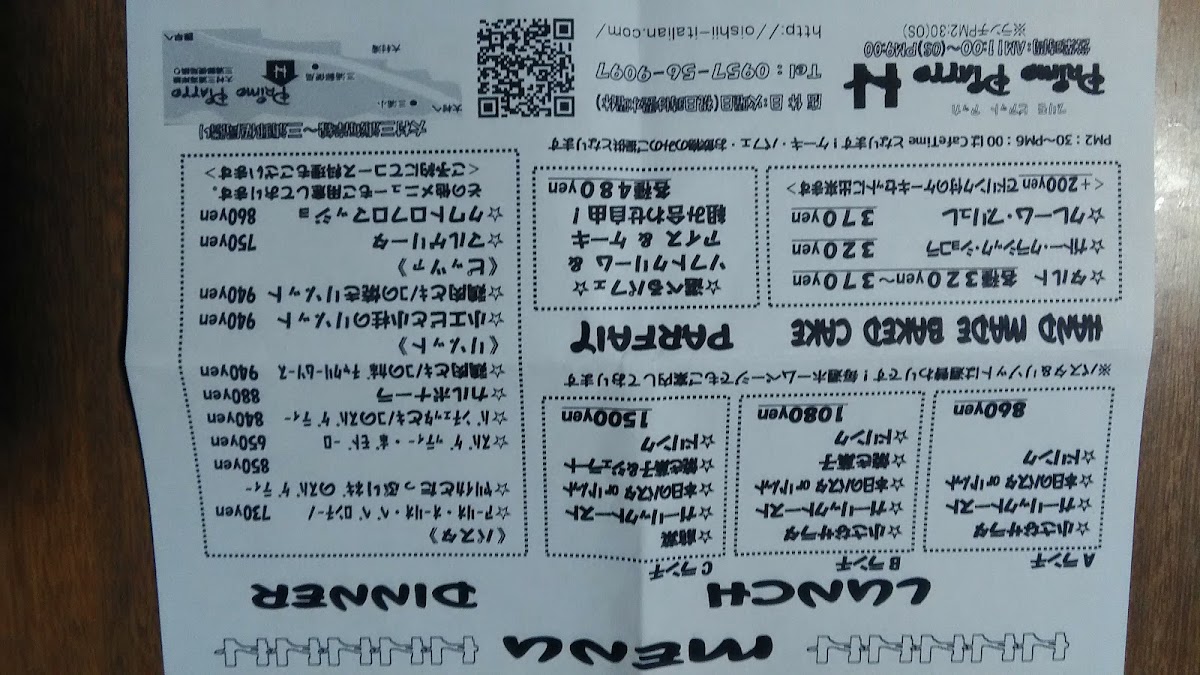 MENU
LUNCH
Aランチ
☆小さなサラダ
☆ガーリックトースト
☆本日のパスタ or リゾット
☆ドリンク
860yen
Bランチ
☆小さなサラダ
☆ガーリックトースト
☆本日のパスタ or リゾット
☆焼き菓子
☆ドリンク
1080yen
Cランチ
☆前菜
☆ガーリックトースト
☆本日のパスタ or リゾット
☆焼き菓子&ジェラート
☆ドリンク
1500yen
※パスタ&リゾットは週替わりです!毎週ホームページでもご案内しております
HAND MADE BAKED CAKE
☆タルト 各種320yen~370yen
☆ガトー・クラシック・ショコラ 320yen
☆クレーム・ブリュレ 370yen
<+200yenでドリンク付のケーキセットに出来ます>
PARFAIT
☆選べるパフェ☆
ソフトクリーム &
アイス & ケーキ
組み合わせ自由!
各種480yen
PM2:30~PM6:00はCafeTimeとなります!ケーキ・パフェ・お飲物のみのご提供となります
DINNER
《パスタ》
☆アーリオ・オーリオ・ペペロンチーノ 730yen
☆ヤリイカとたっぷりネギのスパゲティー
850yen
☆スパゲッティー・ポモドーロ 650yen
☆パンチェッタとキノコのスパゲティー 840yen
☆カルボナーラ 880yen
☆鶏肉とキノコの 940yen
《リゾット》
☆小エビと小柱のリゾット 940yen
☆鶏肉とキノコの焼きリゾット 940yen
《ピッツァ》
☆マルゲリータ 750yen
☆クワトロフロマッジョ 860yen
その他メニューもご用意しております。
<ご予約にてコース料理もございます>
プリモ ピアット アッカ
Primo Piatto H
営業時間:AM11:00~(OS)PM9:00
※ランチPM2:30(OS)
店休日:火曜日(祝日時は翌水曜休)
Tel:0957-56-9097
http://oishii-italian.com/
大村へ
三浦小
三浦郵便局
大村湾
諫早へ
Primo
Piatto
H